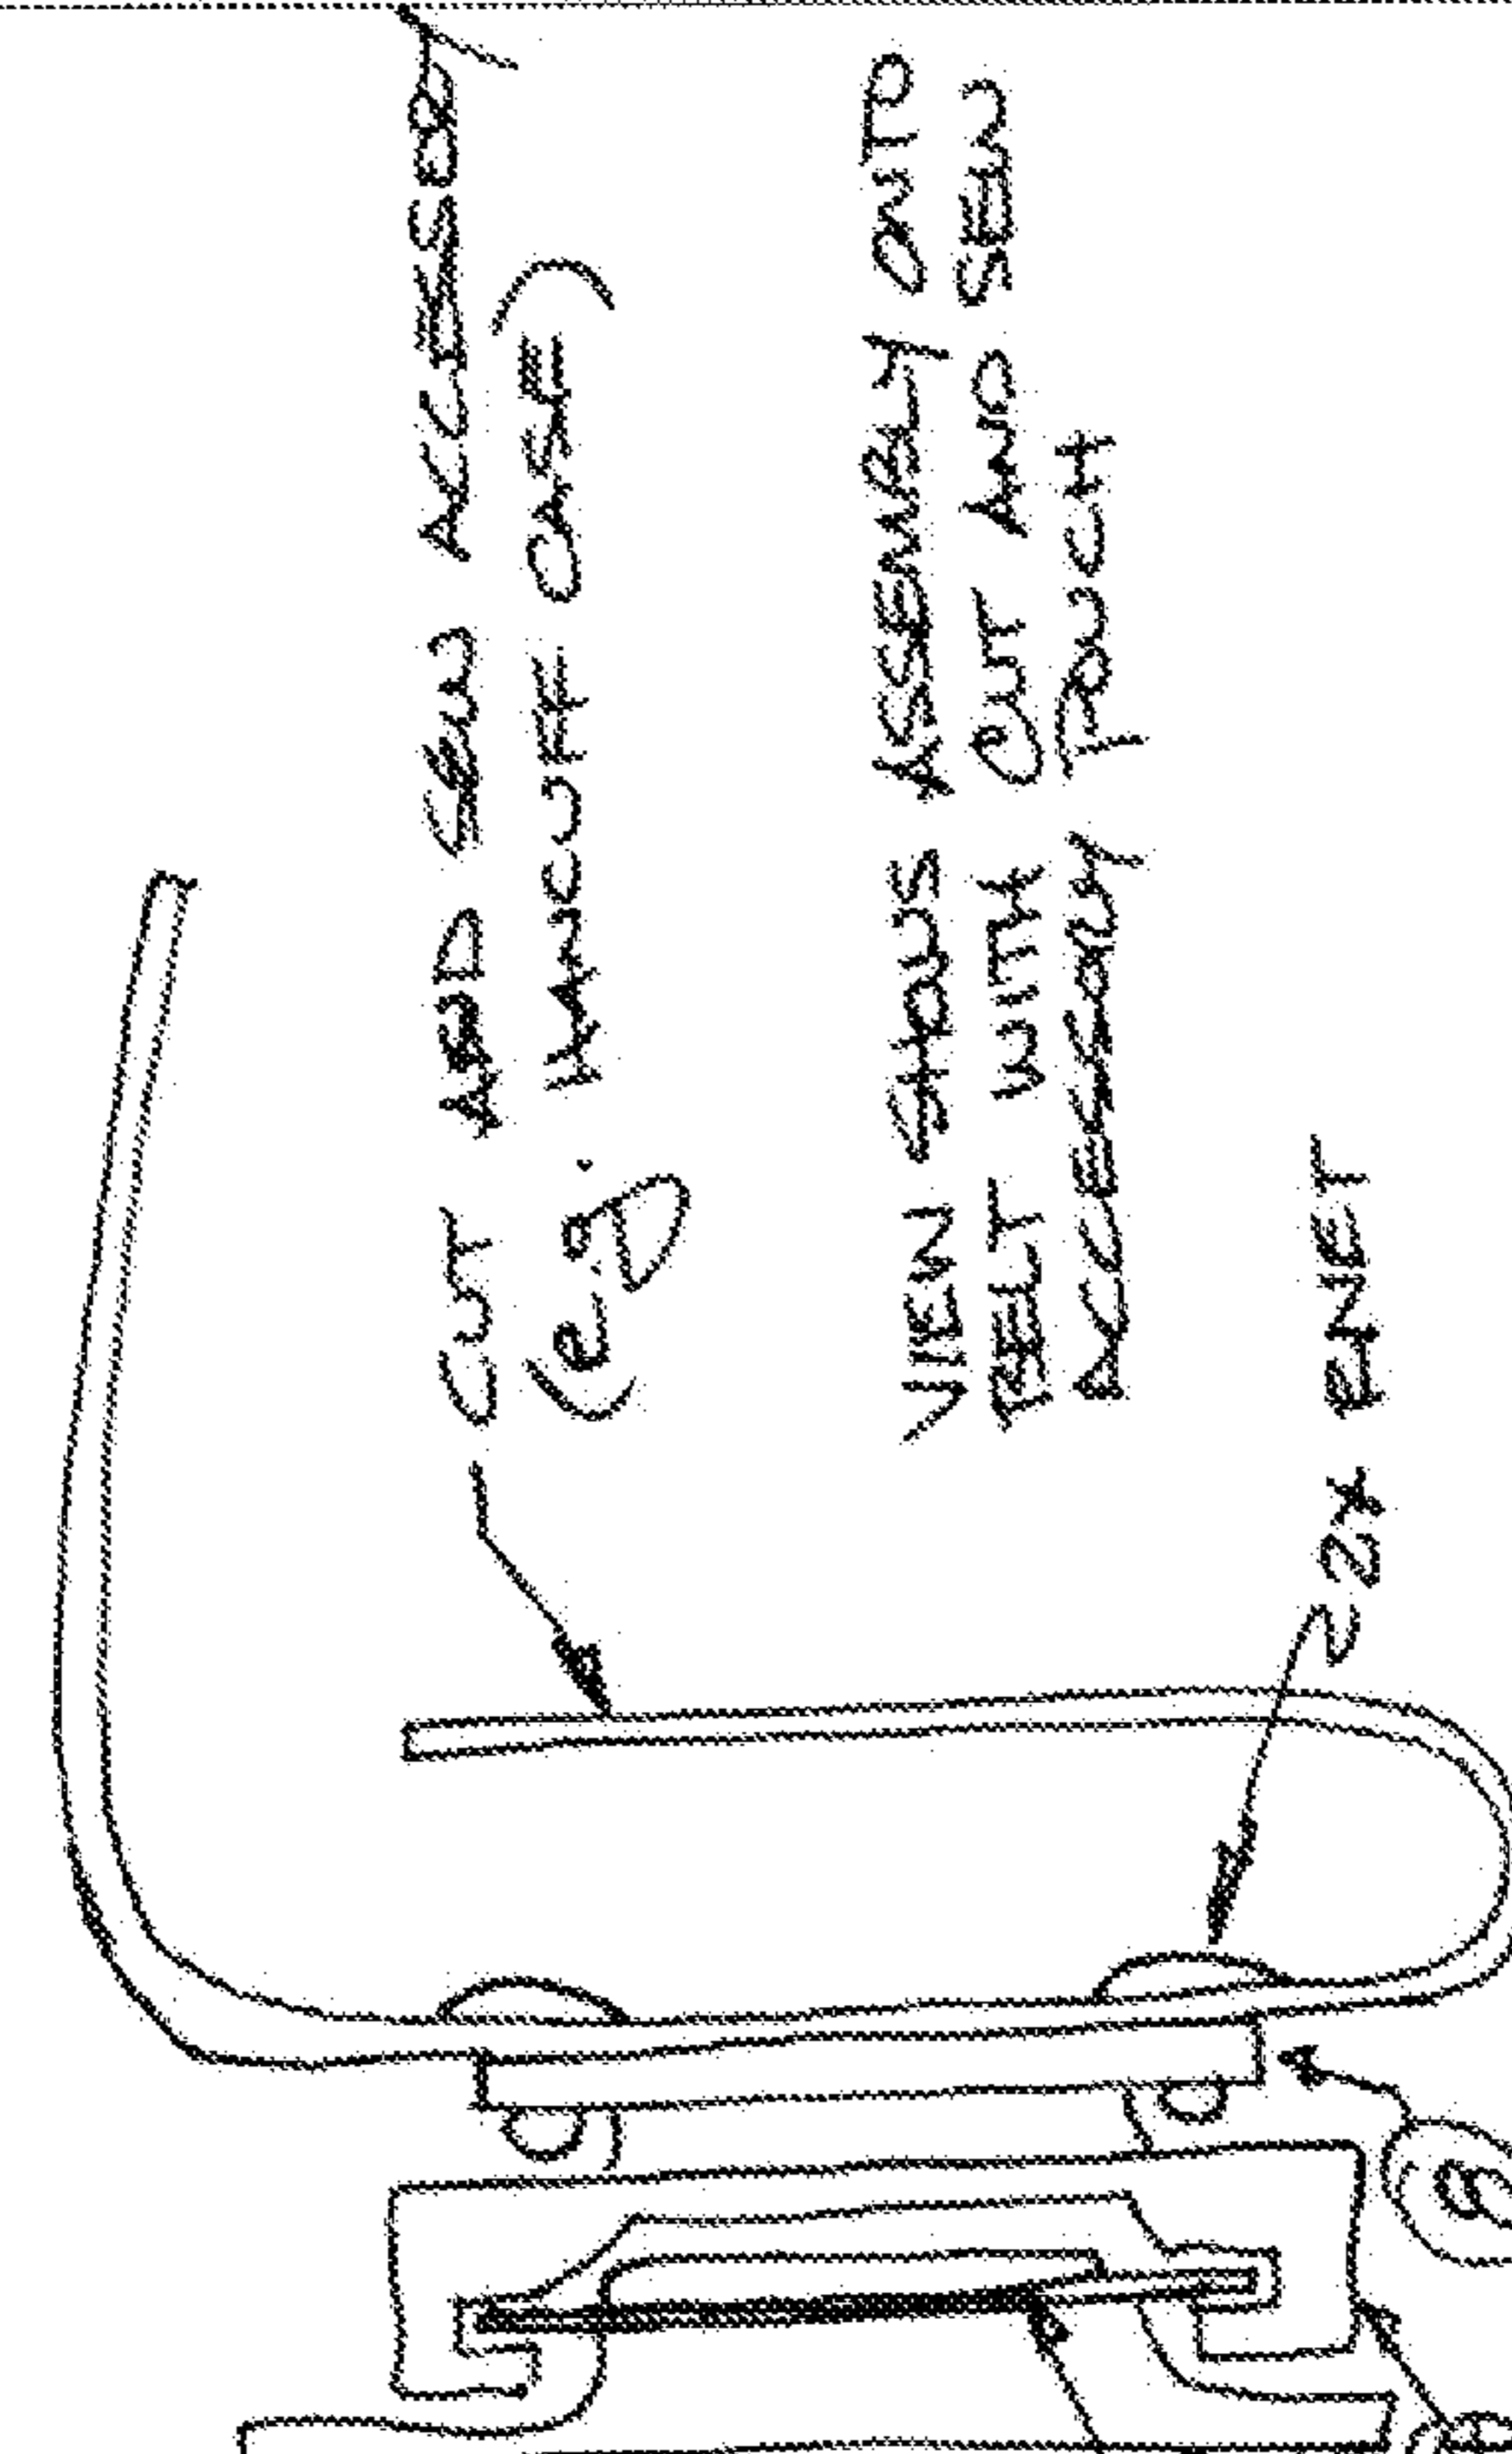 CUT AND SEW ACCESSORY
(e.g. HANCUFF CASE)
VIEW SHOWS ASSEMBLY ONTO
BELT WITH CUT AND SEWN
ACCESSORY POUCH
2X